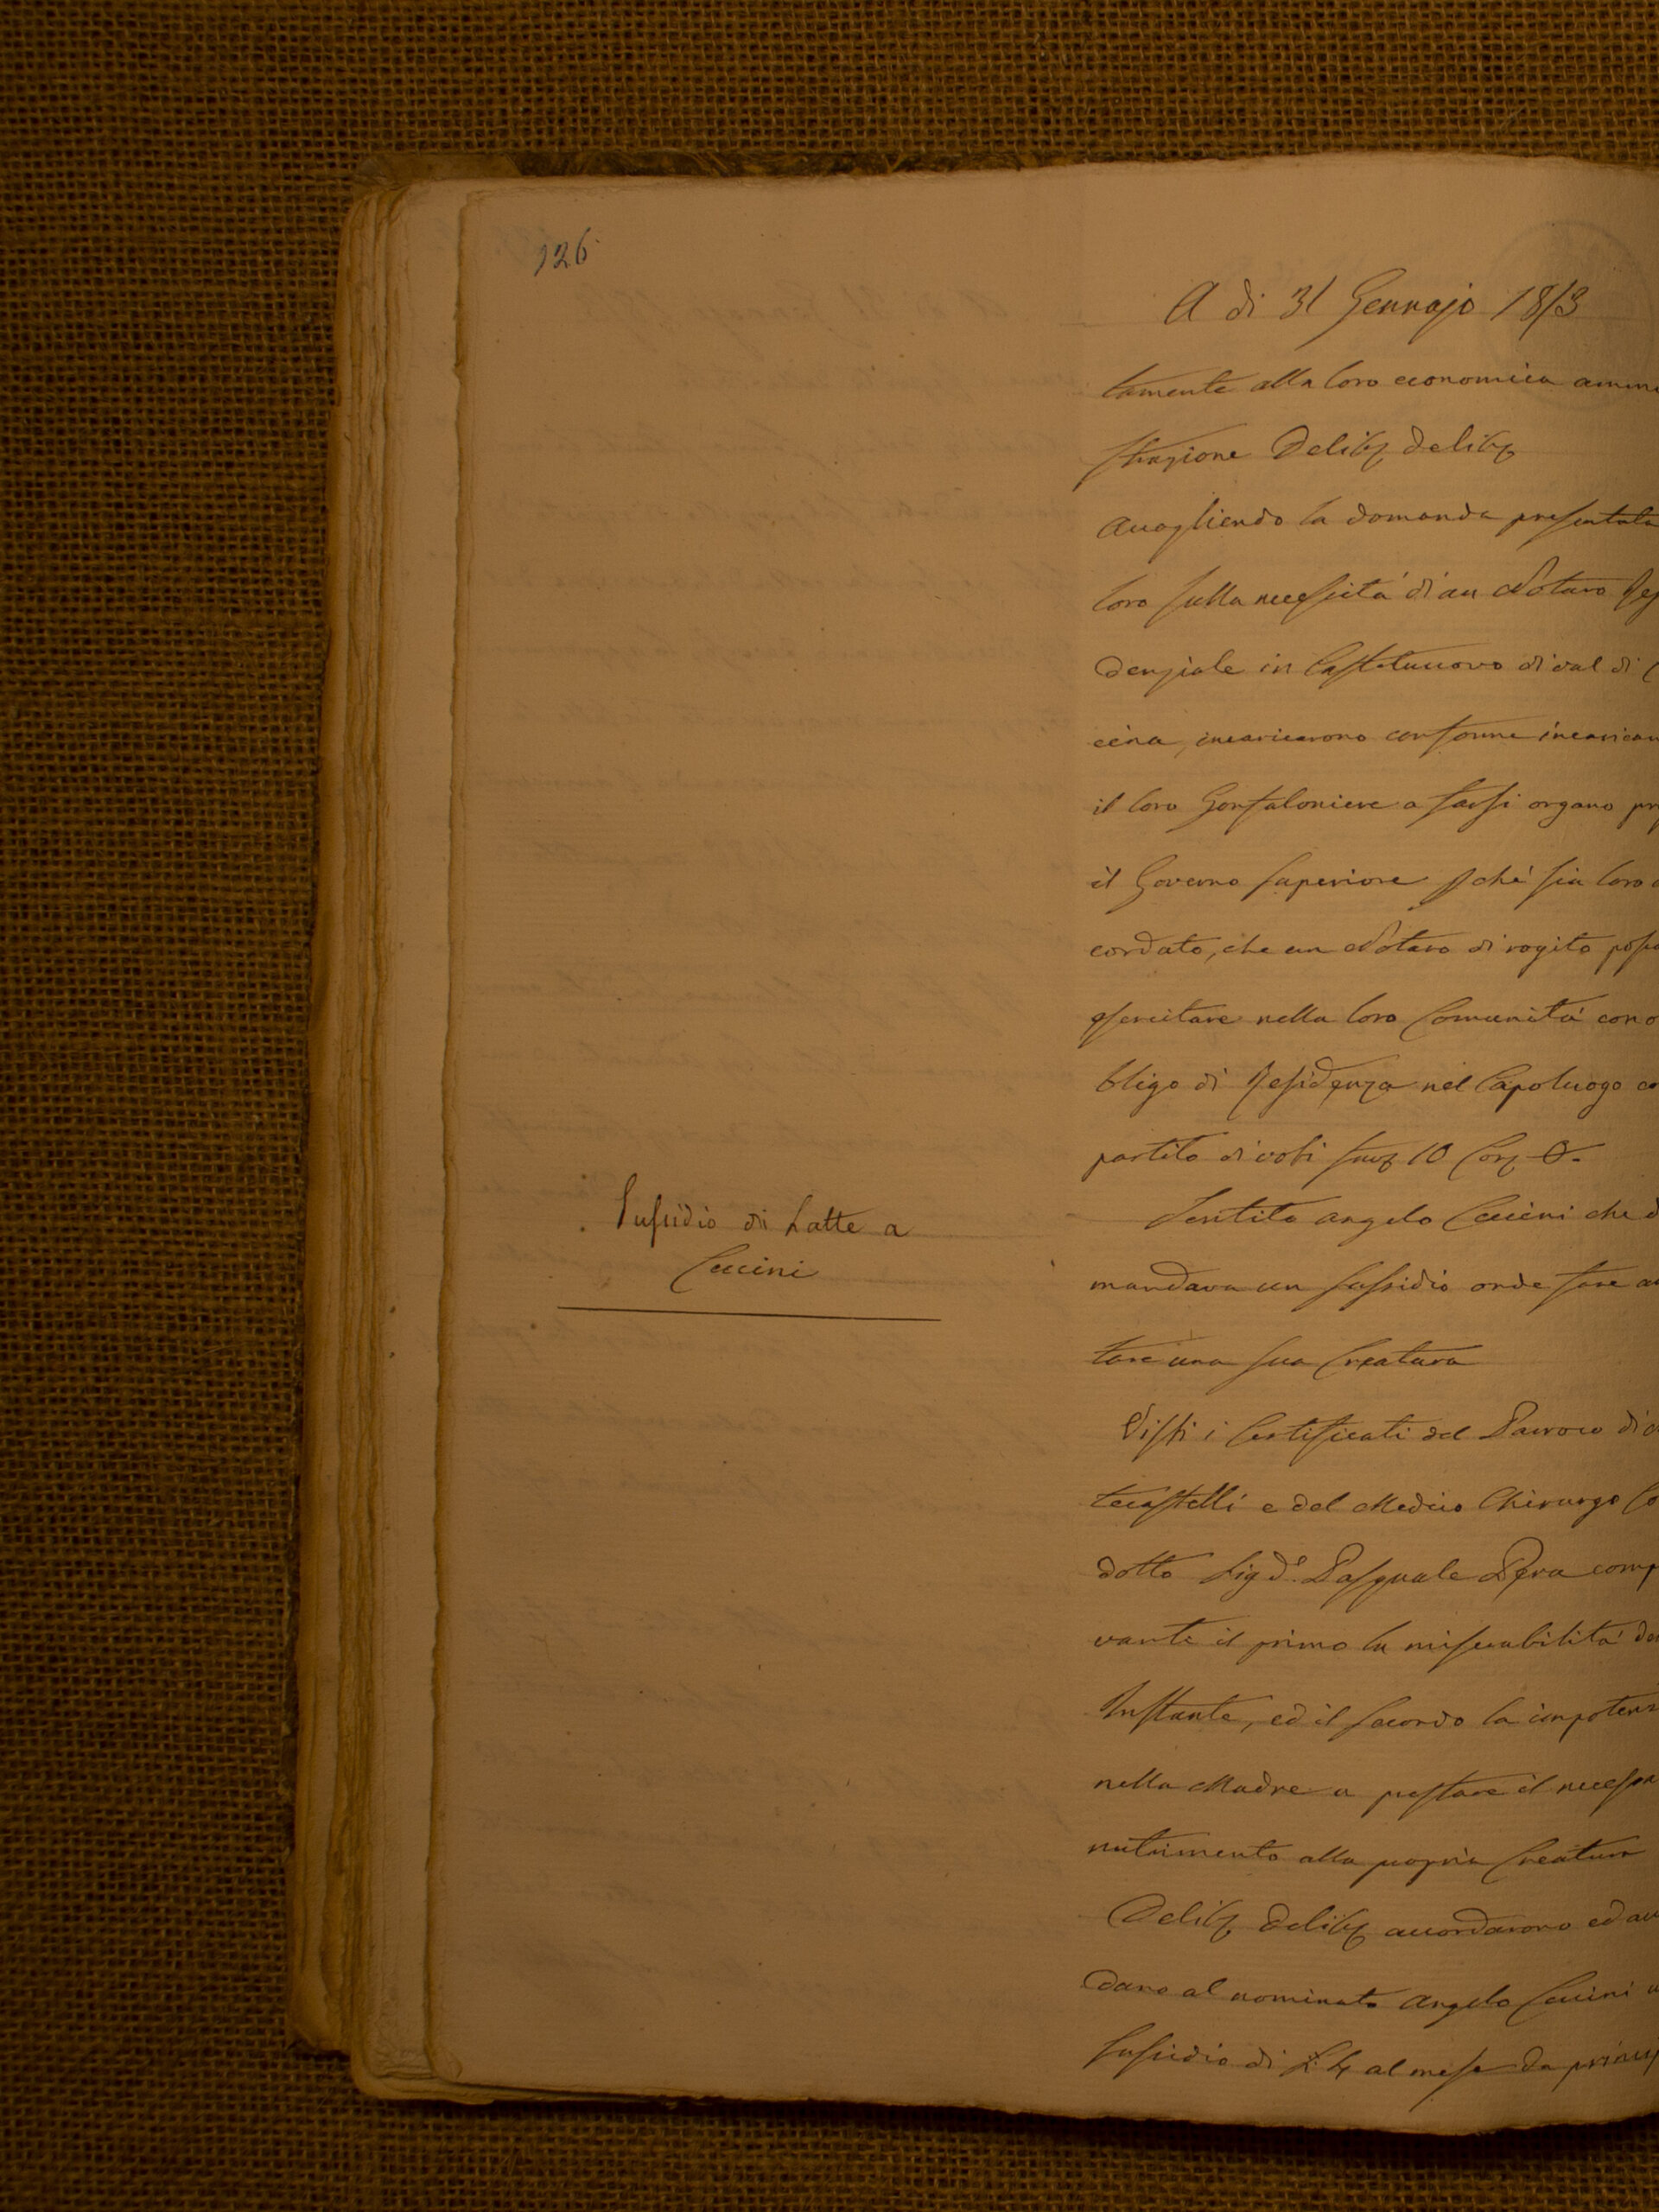 126
A di 31 Gennajo 1843
tamente alla loro economica ammi
strazione Delibz delibz
Accogliendo la domanda presentata
loro sulla necessità di un Notaro Resi
denziale in Castelnuovo di val di C
cina, incaricarono conforme incarican
il loro Gonfaloniere a farsi organo pr
il Governo Superiore pchè sia loro
cordato, che un Notaro di rogito possa
esercitare nella loro Comunità con o
bligo di Residenza nel Capoluogo co
partito di voti favz 10 Conz 0.
Sussidio di Latte a
Ceccini
Sentito Angelo Ceccini che d
mandava un sussidio onde fare al
tare una sua Creatura
Visti i Certificati del Parroco di
tecastelli e del Medico Chirurgo Co
dotto Sig Dr. Pasquale Pera comp
vante il primo la miserabilità del
Instante, ed il secondo la impotenz
nella Madre a prestare il necessa
nutrimento alla propria Creatura
Delibz Delibz accordarono ed ac
dano al nominato Angelo Ceccini u
Sussidio di L. 4 al mese da princip